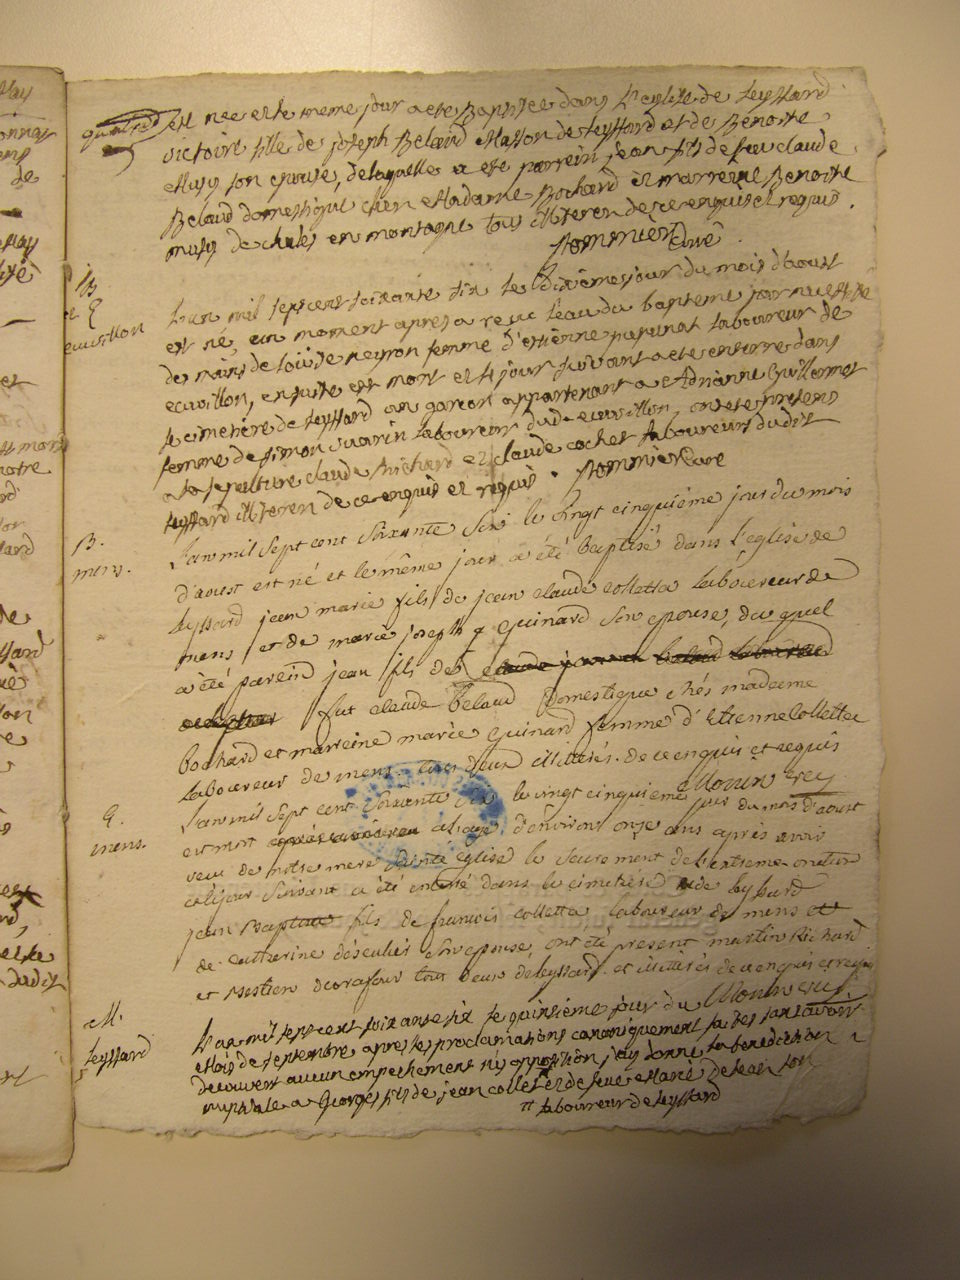 est née et le meme jour a eté Baptisée dans l'eglise de leyssard
victoire fille de joseph Belaud Masson de leyssard et de Benoite
son epouse, de laquelle a eté parrein jean fils de feu claude
Belaud domestique chez Madame Bochard et marreine Benoite
de chales en montagne tous illiteren de ce enquis et requis.
curé
B
et E
ecuvillon
L'an mil sept cent soixante six le dixième jour du mois d'aoust
est né, un moment apres a reçu l'eau du bapteme par necessité
des mains de louise neyron femme d'estienne laboureur de
ecuvillon, ensuite est mort et le jour suivant a eté enterré dans
le cimetiere de leyssard un garçon appartenant a Adrianne Guillermet
femme de simon suarin laboureur dud ecuvillon, ont eté presens
a la sepulture claude Richard et claude cochet laboureurs dudit
leyssard illiteren de ce enquis et requis. curé
B.
mens.
L'an mil sept cent soixante six le vingt cinquième jour du mois
d'aoust est né et le même jour a été baptisé dans l'église de
leyssard jean marie fils de jean claude colletta laboureur de
mens et de marie joseph guinard son epouse, du quel
a été parein jean fils de
feu claude Belaud domestique chés madame
bochard et marreine marie guinard femme d'Etienne Colletta
laboureur de mens. tous deux illitérés. de ce enquis et requis
E.
mens.
L'an mil sept cent soixante six le vingt cinquieme jour du mois d'aoust
est mort a l'age d'environ onze ans après avoir
reçu de notre mere sainte église le sacrement de l'extreme onction
et le jour suivant a été enterré dans le cimetière de leyssard
jean fils de françois colletta, laboureur de mens et
de catherine son epouse, ont été present martin Richard
et tout deux de leyssard et illitérés de ce enquis et requis
M.
leyssard
L'an mil sept cent soixante six le quinsième jour du
Mois de septembre apres les proclamations canoniquement faites sans avoir
decouvert aucun empechement ni opposition j'ay donné la benediction
nuptiale a Georges fils de jean collet et de feue Marie
laboureur de leyssard